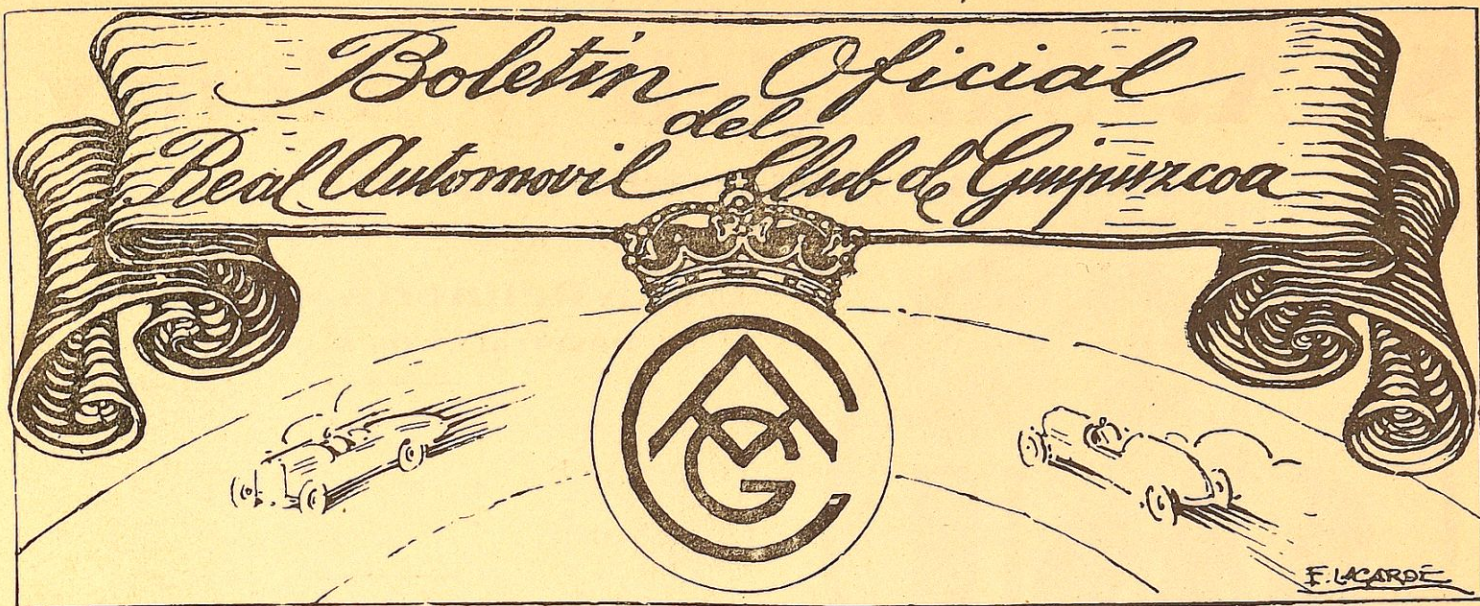 Boletín Oficial
del
Real Automovil Club de Guipuzcoa
CAG
E. LAGARDE